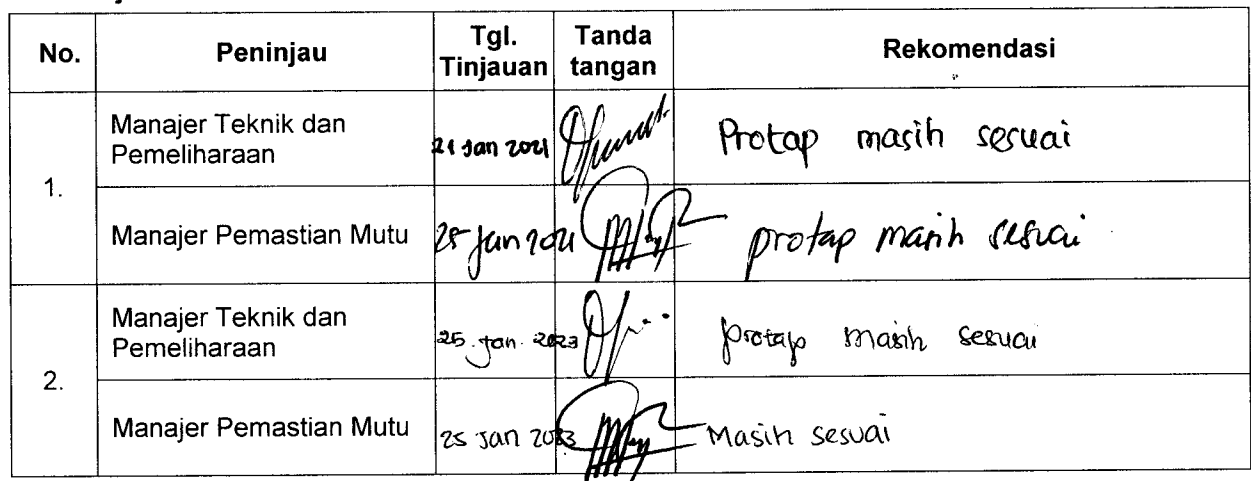 No. Peninjau Tgl. Tinjauan Tanda tangan Rekomendasi
1. Manajer Teknik dan Pemeliharaan 21 Jan 2021 Protap masih sesuai
Manajer Pemastian Mutu 25 Jan 2021 protap masih sesuai
2. Manajer Teknik dan Pemeliharaan 25. Jan. 2023 protap masih sesuai
Manajer Pemastian Mutu 25 Jan 2023 Masih sesuai